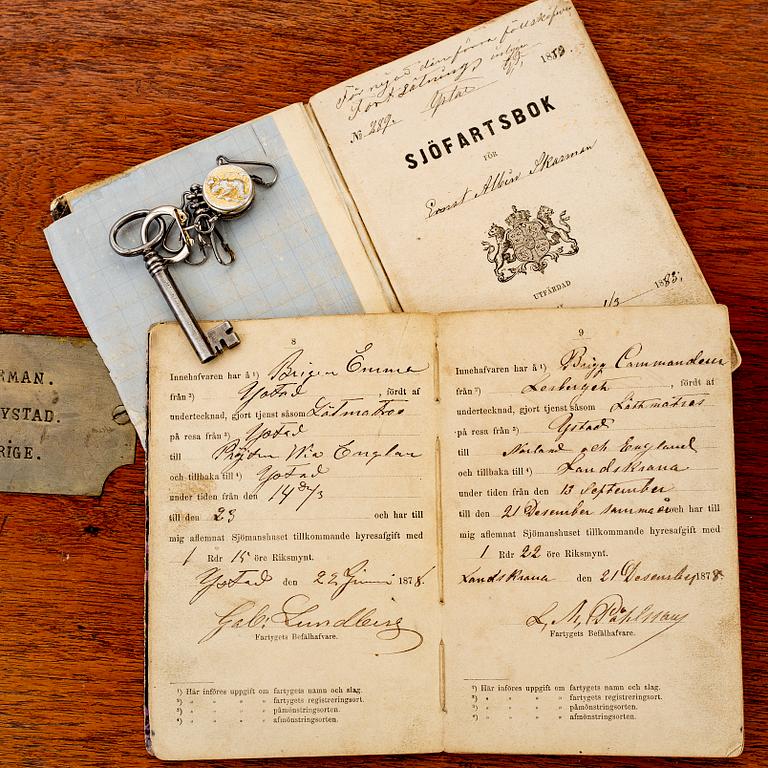 För
Fortsätning
Ystad
№ 289.
SJÖFARTSBOK
FÖR
Ernst Albin Skarman
UTFÄRDAD
1/3 1883.
RMAN.
YSTAD.
RIGE.
8
Innehafvaren har å ¹) Brigen Emma
från ²) Ystad , fördt af
undertecknad, gjort tjenst såsom Lätmatros
på resa från ³) Ystad
till
och tillbaka till ⁴) Ystad
under tiden från den 14
till den 23 och har till
mig aflemnat Sjömanshuset tillkommande hyresafgift med
1 Rdr 15 öre Riksmynt.
Ystad den 22 Juni 1878.
Gab: Lundberg
Fartygets Befälhafvare.
¹) Här införes uppgift om fartygets namn och slag.
²) " " " " fartygets registreringsort.
³) " " " " påmönstringsorten.
⁴) " " " " afmönstringsorten.
9
Innehafvaren har å ¹) Brigg Commandeur
från ²) , fördt af
undertecknad, gjort tjenst såsom Lättmatros
på resa från ³) Ystad
till Norland och England
och tillbaka till ⁴) Landskrona
under tiden från den 13 September
till den 21 Desember samma år och har till
mig aflemnat Sjömanshuset tillkommande hyresafgift med
1 Rdr 22 öre Riksmynt.
Landskrona den 21 Desember 1878.
L. M. Påhlsson
Fartygets Befälhafvare.
¹) Här införes uppgift om fartygets namn och slag.
²) " " " " fartygets registreringsort.
³) " " " " påmönstringsorten.
⁴) " " " " afmönstringsorten.